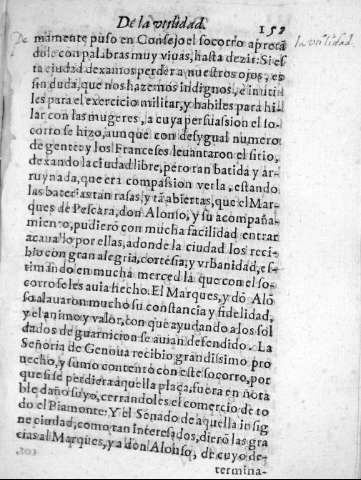 De la verdad. 159
mamente puso en Consejo el socorro aproua
dole con palabras muy viuas, hasta dezir: Si es
ta ciudad dexamos perder a nuestros ojos, es
sin duda, que nos hazemos indignos, e inutiles
les para el exercicio militar, y habiles para hi
lar con las mugeres, a cuya persuasion el so-
corro se hizo, aunque con desygual numero
de gente: y los Franceses leuantaron el sitio,
dexando la ciudad libre, pero tan batida y ar-
ruynada, que era compassion verla, estando
las baterias tan rasas, y tã abiertas, que el Mar-
ques de Pescara, don Alonso, y su acompaña-
miento, pudierõ con mucha facilidad entrar
a cauallo por ellas, adonde la ciudad los reci-
bio con gran alegria, cortesia, y vrbanidad, es-
timãdo en mucha merced la que con el so-
corro se les auia hecho. El Marques, y dõ Alõ
so alauaron mucho su constancia y fidelidad,
y el animo y valor, con que ayudando a los sol
dados de guarnicion se auian defendido. La
Señoria de Genoua recibio grandissimo pro
uecho, y sumo contento con este socorro, por
que si se perdiera aquella plaça, fuera en nota
ble daño suyo, cerrandoles el comercio de to
do el Piamonte: Y el Senado de aquella insig
ne ciudad, como tan interesados, dierõ las gra
cias al Marques, y a don Alonso, de cuyo de-
termina-